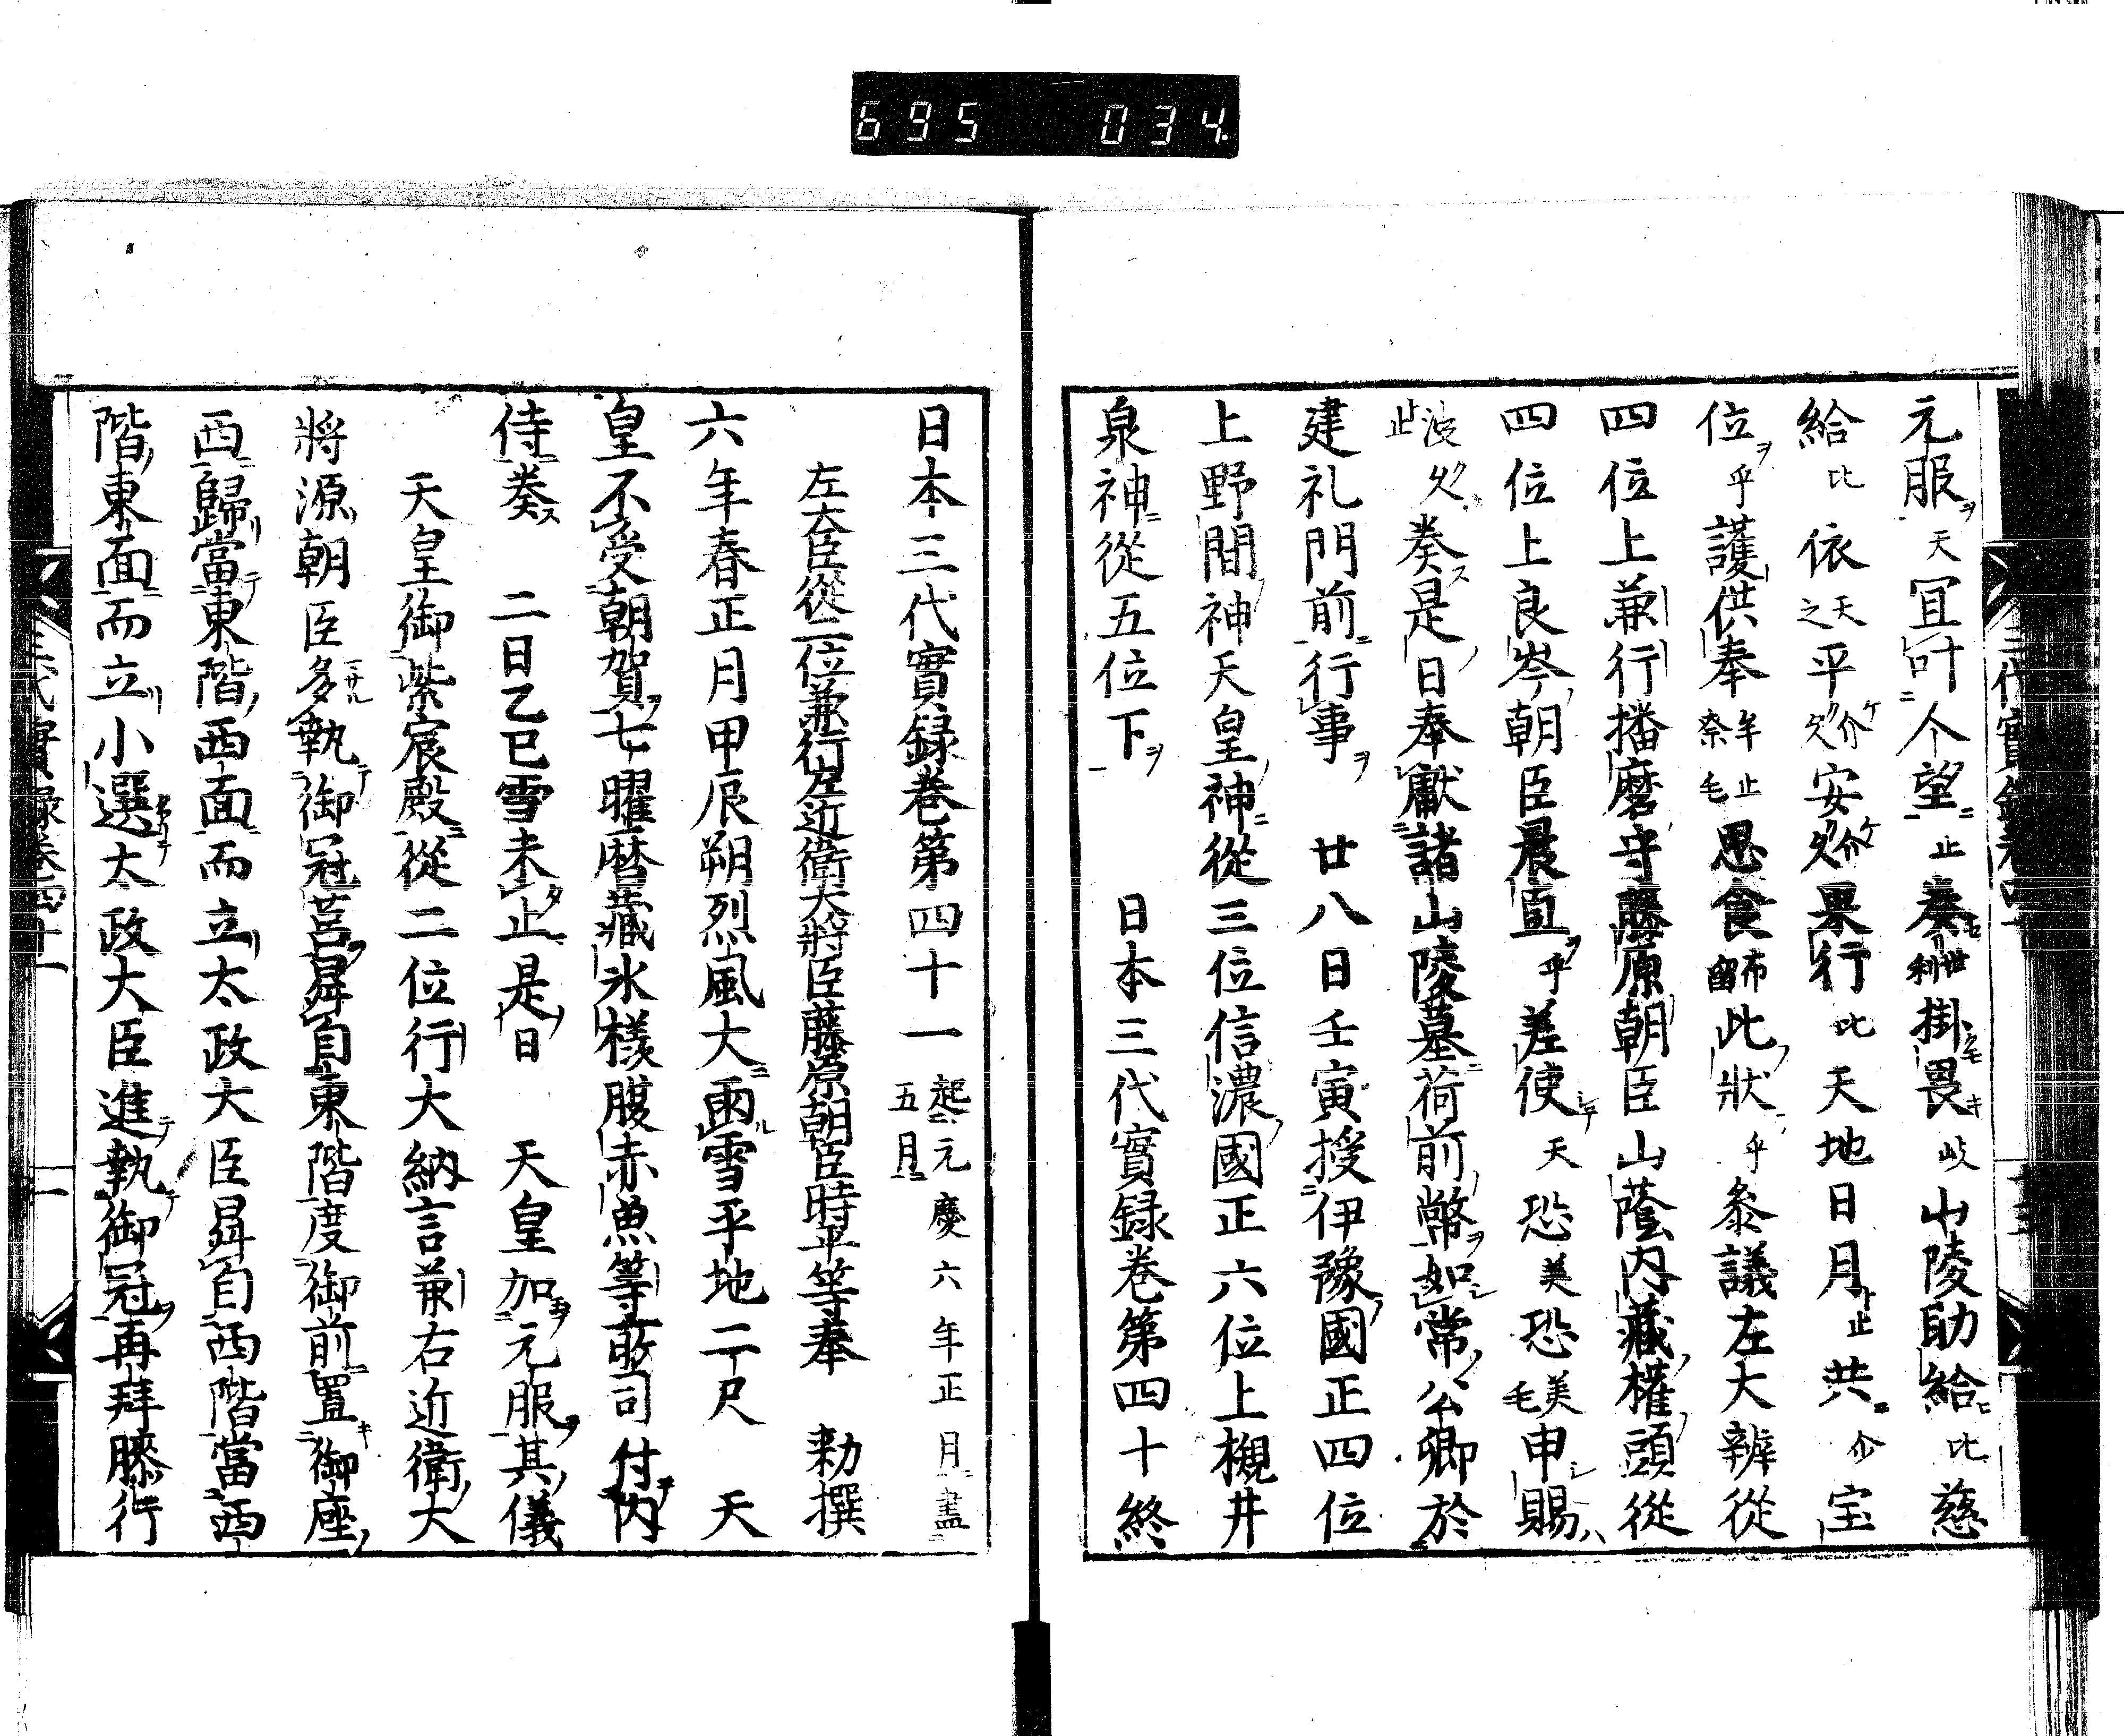 695 034
元服天冝叶人望止奏世利掛畏岐山陵助給比慈
給比依天之平介久安介久果行比天地日月止共介宝
位乎護供奉牟止奈毛思食布留此狀乎叅議左大辨從
四位上兼行播磨守藤原朝臣山蔭内藏權頭從
四位上良岑朝臣晨直乎差使天恐美恐美毛申賜
波久止奏是日奉獻諸山陵墓荷前幣如常公卿於
建礼門前行事　廿八日壬寅授伊豫國正四位
上野間神天皇神從三位信濃國正六位上槻井
泉神從五位下　日本三代實録卷第四十終
日本三代實録卷第四十一起元慶六年正月盡五月
左大臣從二位兼行左近衞大將臣藤原朝臣時平等奉　勅撰
六年春正月甲辰朔烈風大雨雪平地二尺　天
皇不受朝賀七曜曆藏氷樣腹赤魚等所司付内
侍奏　二日乙巳雪未止是日　天皇加元服其儀
天皇御紫宸殿從二位行大納言兼右近衞大
將源朝臣多執御冠筥昇自東階度御前置御座
西歸當東階西面而立太政大臣昇自西階當西
階東面而立小選太政大臣進執御冠再拜膝行
三代實録卷四十一　一